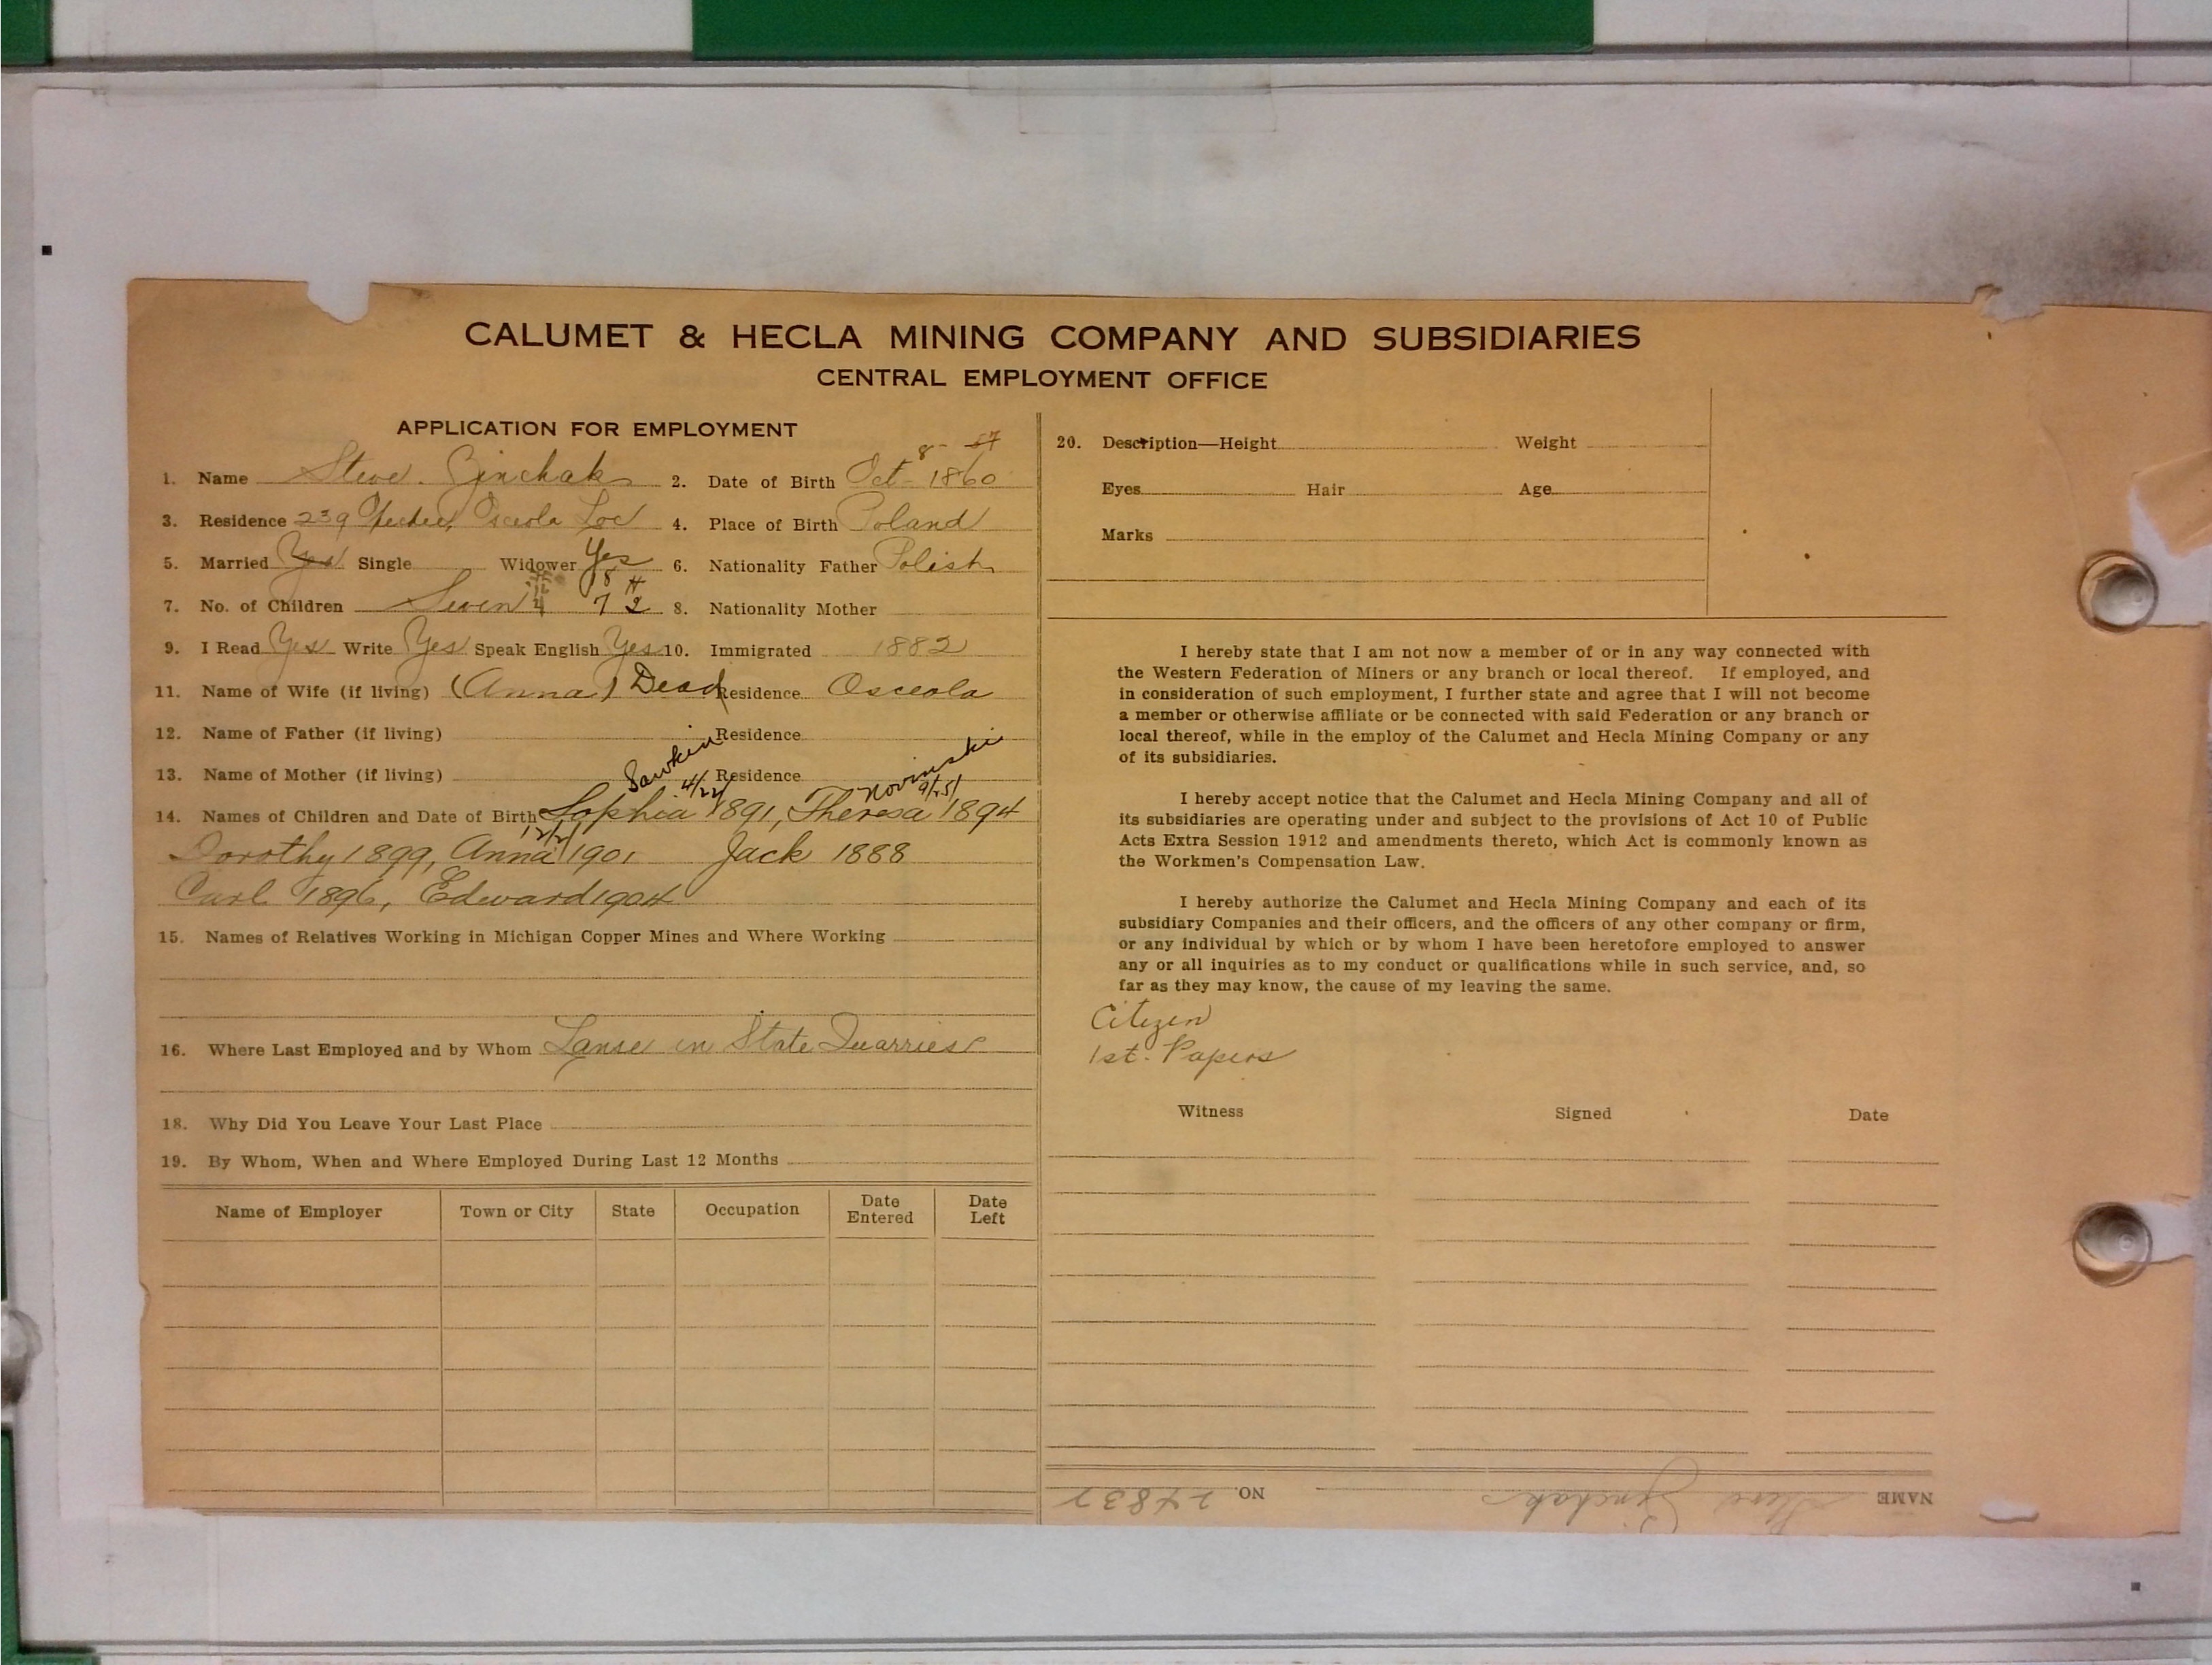 CALUMET & HECLA MINING COMPANY AND SUBSIDIARIES
CENTRAL EMPLOYMENT OFFICE
APPLICATION FOR EMPLOYMENT
8- 57
1. Name Steve. Ginchak 2. Date of Birth Oct- 1860
3. Residence 239 Osceola Loc 4. Place of Birth Poland
5. Married Yes Single Widower Yes 6. Nationality Father Polish
7. No. of Children Seven 4 7 2 8. Nationality Mother
9. I Read Yes Write Yes Speak English Yes 10. Immigrated 1882
11. Name of Wife (if living) (Anna) Dead Residence Osceola
12. Name of Father (if living) Residence
13. Name of Mother (if living) Residence
Sawkin 4/22/ Novinski 9/25/
14. Names of Children and Date of Birth Sophia 1891, Theresa 1894
12/2/
Dorothy 1899, Anna 1901 Jack 1888
Carl 1896, Edward 1904
15. Names of Relatives Working in Michigan Copper Mines and Where Working
16. Where Last Employed and by Whom Lanse in State Quarries
18. Why Did You Leave Your Last Place
19. By Whom, When and Where Employed During Last 12 Months
Name of Employer Town or City State Occupation Date Entered Date Left
20. Description—Height Weight
Eyes Hair Age
Marks
I hereby state that I am not now a member of or in any way connected with
the Western Federation of Miners or any branch or local thereof. If employed, and
in consideration of such employment, I further state and agree that I will not become
a member or otherwise affiliate or be connected with said Federation or any branch or
local thereof, while in the employ of the Calumet and Hecla Mining Company or any
of its subsidiaries.
I hereby accept notice that the Calumet and Hecla Mining Company and all of
its subsidiaries are operating under and subject to the provisions of Act 10 of Public
Acts Extra Session 1912 and amendments thereto, which Act is commonly known as
the Workmen's Compensation Law.
I hereby authorize the Calumet and Hecla Mining Company and each of its
subsidiary Companies and their officers, and the officers of any other company or firm,
or any individual by which or by whom I have been heretofore employed to answer
any or all inquiries as to my conduct or qualifications while in such service, and, so
far as they may know, the cause of my leaving the same.
Citizen
1st. Papers
Witness Signed Date
NAME Steve Ginchak NO. 24837